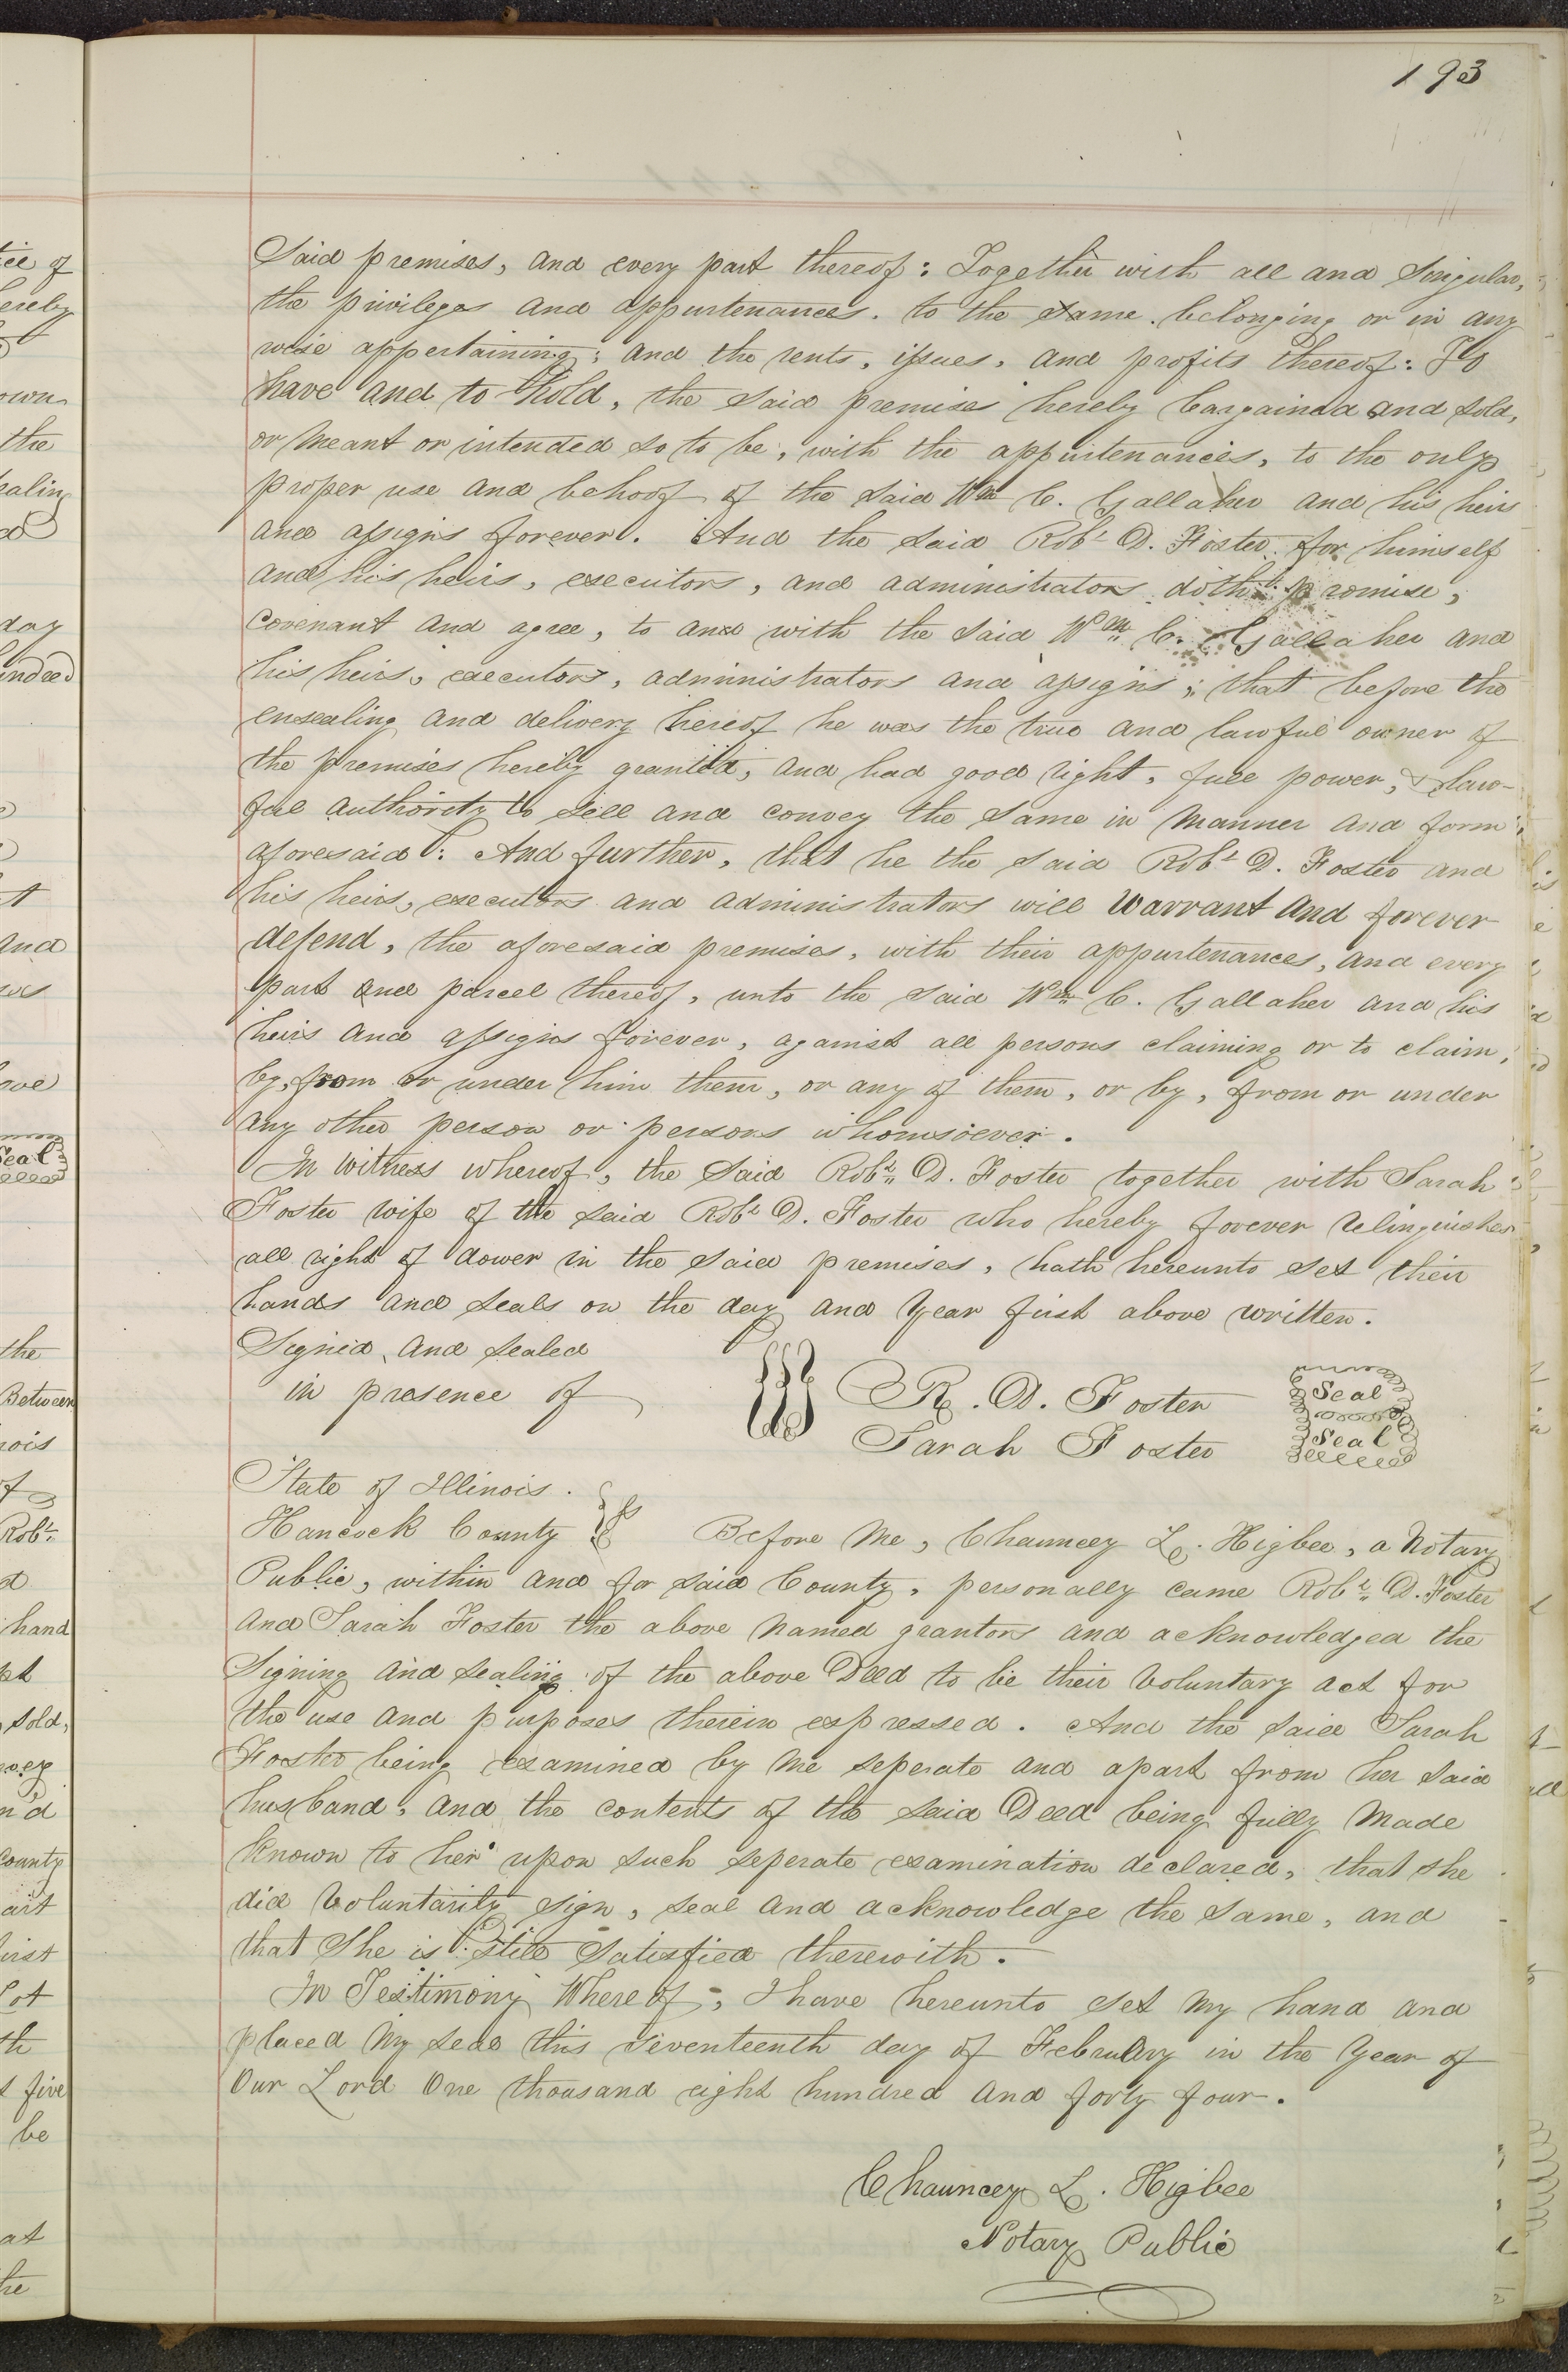 193
Said premises, and every part thereof: Together with all and Singular,
the privileges and appurtenances. to the same. belonging or in any
wise appertaining; and the rents, issues, and profits thereof: To
have and to hold, the said premises hereby bargained and sold,
or meant or intended so to be, with the appurtenances, to the only
proper use and behoof of the said Wm C. Gallaher and his heirs
and assigns forever. And the said Robt D. Foster for himself
and his heirs, executors, and administrators doth promise,
Covenant and agree, to and with the said Wm C. Gallaher and
his heirs, executors, administrators and assigns; that before the
ensealing and delivery hereof he was the true and lawful owner of
the premises hereby granted, and had good right, full power, & law-
ful authority to sell and convey the same in manner and form
aforesaid: And further, that he the said Robt D. Foster and
his heirs, executors and administrators will warrant and forever
defend, the aforesaid premises, with their appurtenances, and every
part and parcel thereof, unto the said Wm C. Gallaher and his
heirs and assigns forever, against all persons claiming or to claim,
by, from or under him them, or any of them, or by, from or under
any other person or persons whomsoever.
In witness whereof, the said Robt D. Foster together with Sarah
Foster wife of the said Robt D. Foster who hereby forever relinquishes
all right of dower in the said premises, hath hereunto set their
hands and seals on the day and year first above written.
Signed and sealed
in presence of
R. D. Foster Seal
Sarah Foster Seal
State of Illinois.
Hancock County } ss Before me, Chauncey L. Higbee, a Notary
Public, within and for said County, personally came Robt D. Foster
and Sarah Foster the above named grantors and acknowledged the
Signing and sealing of the above Deed to be their voluntary act for
the use and purposes therein expressed. And the said Sarah
Foster being examined by me seperate and apart from her said
husband, and the contents of the said Deed being fully made
known to her upon such seperate examination declared, that she
did voluntarily sign, seal and acknowledge the same, and
that She is still Satisfied therewith.
In Testimony Whereof, I have hereunto set my hand and
placed my seal this seventeenth day of February in the year of
Our Lord One thousand eight hundred and forty four.
Chauncey L. Higbee
Notary Public